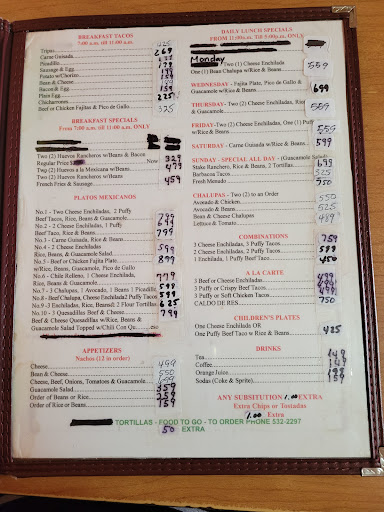 BREAKFAST TACOS
7:00 a.m. till 11:00 a.m.
Tripas 325
Carne Guisada 269
Picadillo
Sausage & Egg
Potato w/Chorizo
Bean & Cheese
Bacon & Egg 199
Plain Egg
Chicharrones 225
Beef or Chicken Fajitas & Pico de Gallo 325
BREAKFAST SPECIALS
From 7:00 a.m. till 11:00 a.m. ONLY
Two (2) Huevos Rancheros w/Beans & Bacon
Regular Price Now 329
Two (2) Huevos a la Mexicana w/Beans 479
Two (2) Huevos Rancheros w/Beans
French Fries & Sausage 459
PLATOS MEXICANOS
No.1 - Two Cheese Enchiladas, 2 Puffy
Beef Tacos, Rice, Beans & Guacamole 799
No.2 - 2 Cheese Enchiladas, 1 Puffy
Beef Taco, Rice & Beans 799
No.3 - Carne Guisada, Rice & Beans
No.4 - 2 Cheese Enchiladas, Rice 599
Beans, Guacamole Salad
No.5 - Beef or Chicken Fajita Plate 899
w/Rice, Beans, Guacamole, Pico de Gallo
No.6 - Chile Relleno, 1 Cheese Enchilada,
Rice & Beans 779
No.7 - 3 Chalupas, 1 Avocado, 1 Beans 1 Picadillo 598
No.8 - Beef Chalupa, Cheese Enchilada 2 Puffy Tacos 598
No.9 - 3 Enchiladas, Rice, Beans & 2 Flour Tortillas 625
No. 10 - 3 Quesadillas Beef & Cheese 799
Beef & Cheese Quesadillas w/Rice, Beans &
Guacamole Salad Topped w/Chili Con Qu
APPETIZERS
Nachos (12 in order)
Cheese 499
Bean & Cheese 550
Cheese, Beef, Onions, Tomatoes & Guacamole 699
Guacamole Salad 359
Order of Beans or Rice 259
Order of Rice or Beans 159
DAILY LUNCH SPECIALS
FROM 11:00a.m. Till 5:00p.m. ONLY
Monday Two (1) Cheese Enchilada
One (1) Bean Chalupa w/Rice & Beans 559
WEDNESDAY - Fajita Plate, Pico de Gallo &
Guacamole w/Rice & Beans 699
THURSDAY - Two (2) Cheese Enchiladas, Rice
& Guacamole 559
FRIDAY-Two (2) Cheese Enchiladas, One (1) Puffy
w/Rice & Beans 559
SATURDAY - Carne Guisada w/Rice & Beans 599
SUNDAY - SPECIAL ALL DAY - (Guacamole Salad)
Stake Ranchero, Rice & Beans, 2 Tortillas 699
Barbacoa Tacos 325
Fresh Menudo 750
CHALUPAS - Two (2) to an Order
Avocado & Chicken 550
Avocado & Beans 525
Bean & Cheese Chalupas
Lettuce & Tomato 489
COMBINATIONS
3 Cheese Enchiladas, 3 Puffy Tacos 759
2 Cheese Enchiladas, 2 Puffy Tacos 599
1 Enchilada, 1 Puffy Beef Taco 450
A LA CARTE
3 Beef or Cheese Enchiladas 499
3 Puffy or Crispy Beef Tacos 499
3 Puffy or Soft Chicken Tacos 499
CALDO DE RES 750
CHILDREN'S PLATES
One Cheese Enchilada OR
One Puffy Beef Taco w/Rice & Beans 425
DRINKS
Tea 149
Coffee 149
Orange Juice 199
Sodas (Coke & Sprite) 159
ANY SUBSITUTION 1.00 EXTRA
Extra Chips or Tostadas
1.00 Extra
TORTILLAS - FOOD TO GO - TO ORDER PHONE 532-2297
50 EXTRA